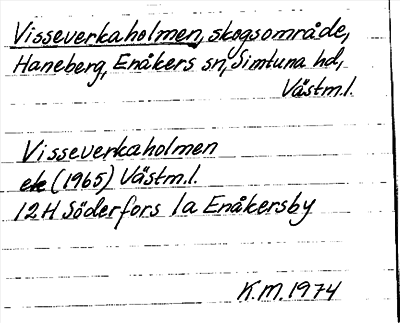 Visseverkaholmen, skogsområde,
Haneberg, Enåkers sn, Simtuna hd,
Västm.l.
Visseverkaholmen
ek (1965) Västm.l.
12H Söderfors 1a Enåkersby
K.M. 1974